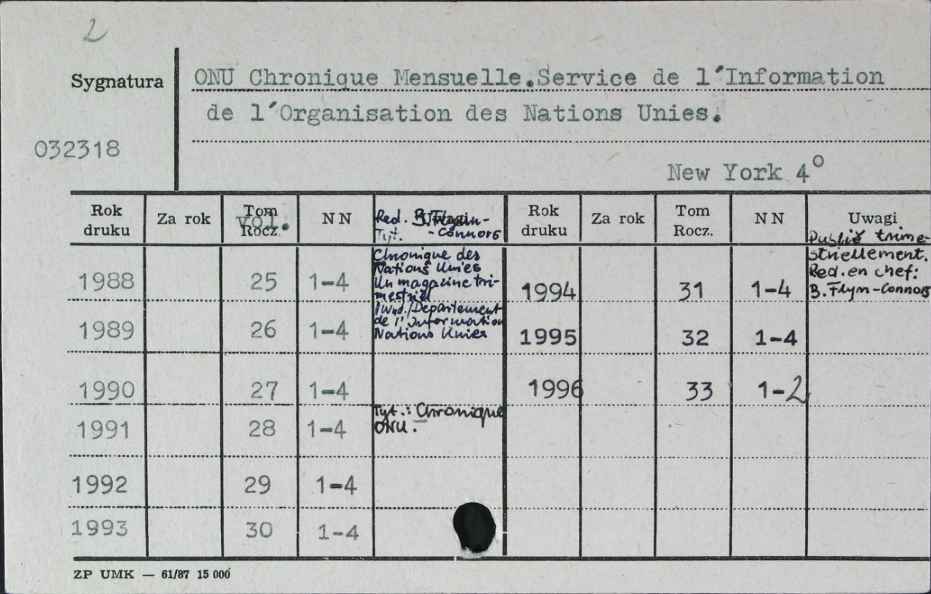 2
Sygnatura
ONU Chronique Mensuelle.Service de l'Information
de l'Organisation des Nations Unies.
032318
New York 4°
Rok druku Za rok Tom Rocz. vol. NN Red. B. Flynn-Connors Tyt. Rok druku Za rok Tom Rocz. NN Uwagi
Chronique des
Nations Unies
Un magazine tri-
mestriel
/Wyd./Departement
de l'Information
Nations Unies
Publié trime-
striellement.
Red. en chef:
B. Flym-Connors
1988 25 1-4 1994 31 1-4
1989 26 1-4 1995 32 1-4
1990 27 1-4 1996 33 1-2
1991 28 1-4 Tyt.: Chronique
ONU.
1992 29 1-4
1993 30 1-4
ZP UMK — 61/87 15 000